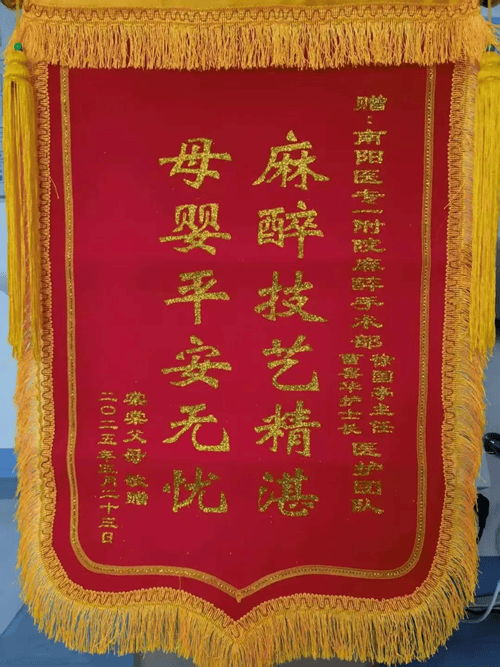 赠：南阳医专一附院麻醉手术部
徐国亭主任
曹喜华护士长
医护团队
麻醉技艺精湛
母婴平安无忧
父母敬赠
二〇二五年三月二十三日